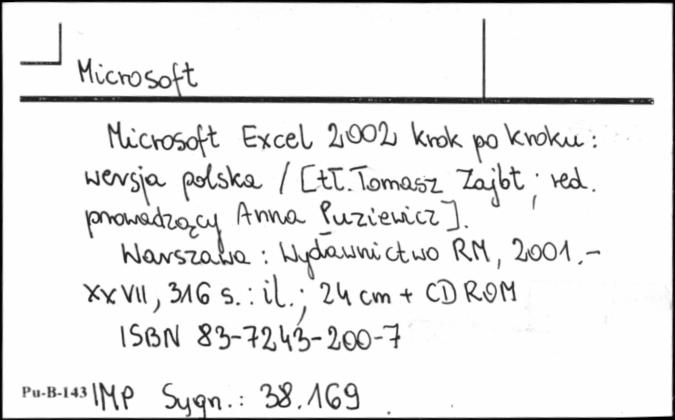 Microsoft
Microsoft Excel 2002 krok po kroku:
wersja polska / [tł. Tomasz Zajbt ; red.
prowadzący Anna Puziewicz].
Warszawa : Wydawnictwo RM, 2001.-
XXVII, 316 s. : il. ; 24 cm + CD ROM
ISBN 83-7243-200-7
Pu-B-143 IMP Sygn.: 38.169